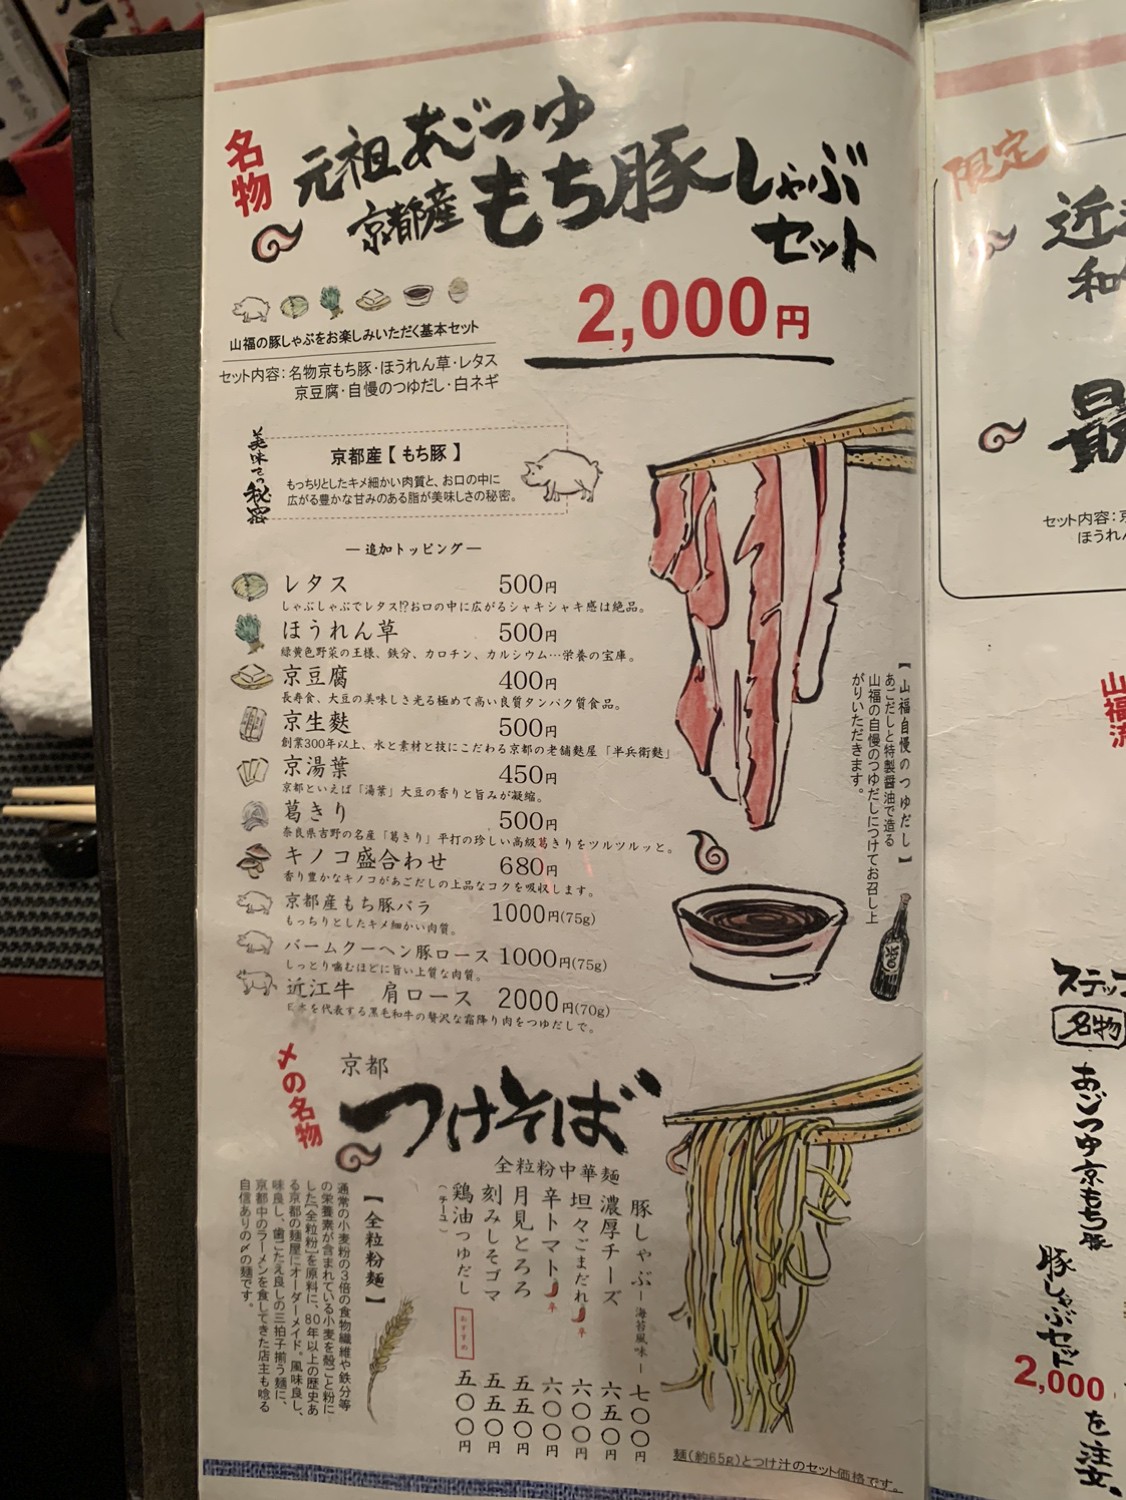 名物
元祖あごつゆ
京都産もち豚しゃぶ
セット
2,000円
山福の豚しゃぶをお楽しみいただく基本セット
セット内容：名物京もち豚・ほうれん草・レタス
京豆腐・自慢のつゆだし・白ネギ
美味さの秘密
京都産【もち豚】
もっちりとしたキメ細かい肉質と、お口の中に
広がる豊かな甘みのある脂が美味しさの秘密。
― 追加トッピング ―
レタス 500円
しゃぶしゃぶでレタス!?お口の中に広がるシャキシャキ感は絶品。
ほうれん草 500円
緑黄色野菜の王様、鉄分、カロチン、カルシウム…栄養の宝庫。
京豆腐 400円
長寿食、大豆の美味しさ光る極めて高い良質タンパク質食品。
京生麩 500円
創業300年以上、水と素材と技にこだわる京都の老舗麩屋「半兵衛麩」
京湯葉 450円
京都といえば「湯葉」大豆の香りと旨みが凝縮。
葛きり 500円
奈良県吉野の名産「葛きり」平打の珍しい高級葛きりをツルツルッと。
キノコ盛合わせ 680円
香り豊かなキノコがあごだしの上品なコクを吸収します。
京都産もち豚バラ 1000円(75g)
もっちりとしたキメ細かい肉質。
バームクーヘン豚ロース 1000円(75g)
しっとり噛むほどに旨い上質な肉質。
近江牛 肩ロース 2000円(70g)
日本を代表する黒毛和牛の贅沢な霜降り肉をつゆだしで。
【山福自慢のつゆだし】
あごだしと特製醤油で造る
山福の自慢のつゆだしにつけてお召し上
がりいただきます。
〆の名物
京都
つけそば
全粒粉中華麺
豚しゃぶ ―海苔風味― 七〇〇円
濃厚チーズ 六五〇円
坦々ごまだれ 辛 六〇〇円
辛トマト 辛 六〇〇円
月見とろろ 五五〇円
刻みしそゴマ 五五〇円
鶏油つゆだし (チーユ) おすすめ 五〇〇円
【全粒粉麺】
通常の小麦粉の3倍の食物繊維や鉄分等
の栄養素が含まれている小麦を殻ごと粉に
した「全粒粉」を原料に、80年以上の歴史あ
る京都の麺屋にオーダーメイド。風味良し、
味良し、歯ごたえ良しの三拍子揃う麺に、
京都中のラーメンを食してきた店主も唸る
自信ありの〆の麺です。
麺(約65g)とつけ汁のセット価格です。
限定
近
和
最
セット内容：京
ほうれん
山福流
ステップ
名物
あごつゆ京もち豚
豚しゃぶセット
2,000
を注文